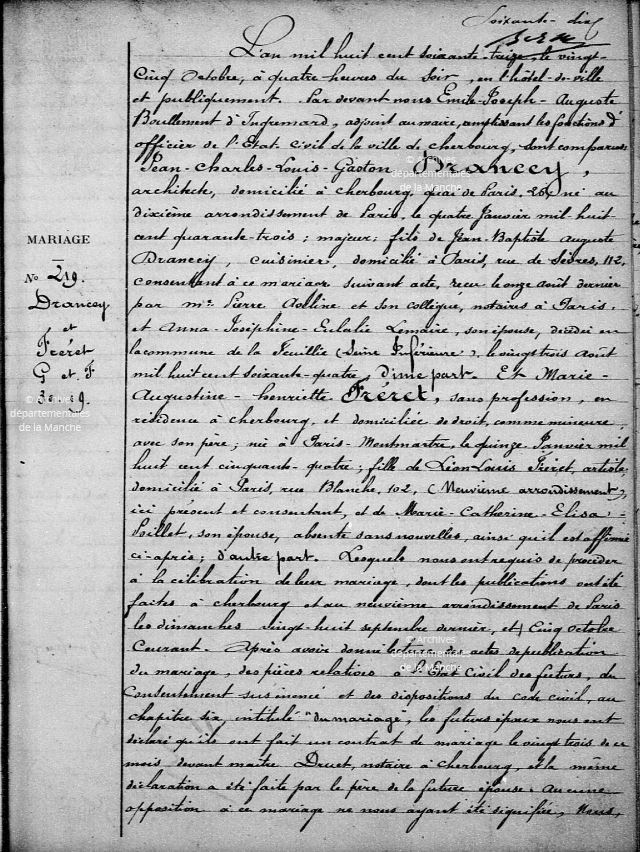 Soixante-dix
L'an mil huit cent soixante-treize, le vingt-
cinq Octobre, à quatre heures du Soir, en l'hôtel-de-ville
et publiquement. Par devant nous Emile-Joseph-Auguste
Boullement d'Ingremard, adjoint au maire, remplissant les fonctions d'
officier de l'Etat Civil de la ville de Cherbourg, sont comparus
Jean-Charles-Louis-Gaston Drancey,
architecte, domicilié à Cherbourg, quai de Paris, né au
dixième arrondissement de Paris, le quatre Janvier mil huit
cent quarante-trois; majeur; fils de Jean-Baptiste Auguste
Drancey, cuisinier, domicilié à Paris, rue de Sèvres, 112,
consentant à ce mariage suivant acte, reçu le onze Août dernier
par me Pierre Aveline et son collègue, notaires à Paris,
et Anna-Joséphine-Eulalie Lemaire, son épouse, décédée en
la commune de la Feuillie (Seine Inférieure), le vingt trois Août
mil huit cent soixante-quatre, d'une part. Et Marie-
Augustine-henriette Fréret, sans profession, en
résidence à Cherbourg, et domiciliée de droit, comme mineure,
avec son père; née à Paris-Montmartre, le quinze Janvier mil
huit cent cinquante-quatre; fille de Léon Louis Fréret, artiste,
domicilié à Paris, rue Blanche, 102, (Neuvième arrondissement),
ici présent et consentant, et de Marie-Catherine-Elisa
Poillet, son épouse, absente sans nouvelles, ainsi qu'il est affirmé
ci-après; d'autre part. Lesquels nous ont requis de procéder
à la célébration de leur mariage, dont les publications ont été
faites à Cherbourg et au neuvième arrondissement de Paris
les dimanches vingt-huit septembre dernier, et Cinq Octobre
Courant. Après avoir donné lecture des actes de publication
du mariage, des pièces relatives à l'Etat Civil des futurs, du
Consentement sus énoncé et des dispositions du code civil, au
chapitre six, intitulé "du mariage", les futurs époux nous ont
déclaré qu'ils ont fait un contrat de mariage le vingt trois de ce
mois, devant maître Druet, notaire à Cherbourg, et la même
déclaration a été faite par le père de la future épouse. Aucune
opposition à ce mariage ne nous ayant été signifiée, Nous,
MARIAGE
No 219.
Drancey
et
Fréret
G et F
© Archives
départementales
de la Manche
© Archives
départementales
de la Manche
© Archives
départementales
de la Manche